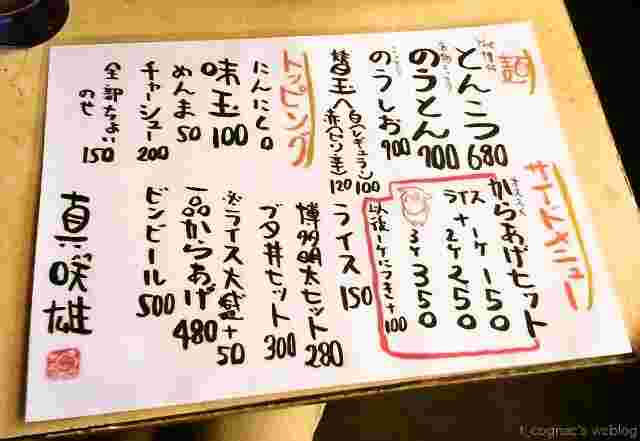 麺
とんこつ 680
のうとん 900
のうしお 900
替玉 白(レギュラー) 100
赤 120
トッピング
にんにく 0
味玉 100
めんま 50
チャーシュー 200
全部ちょい
のせ 150
サイドメニュー
からあげセット
ライス
+一ケ 150
+2ケ 250
3ケ 350
以後一ケにつき+100
ライス 150
博多明太セット 280
ブタ丼セット 300
※ライス大盛+50
一品からあげ 480
ビンビール 500
真咲雄
t_cognac's weblog